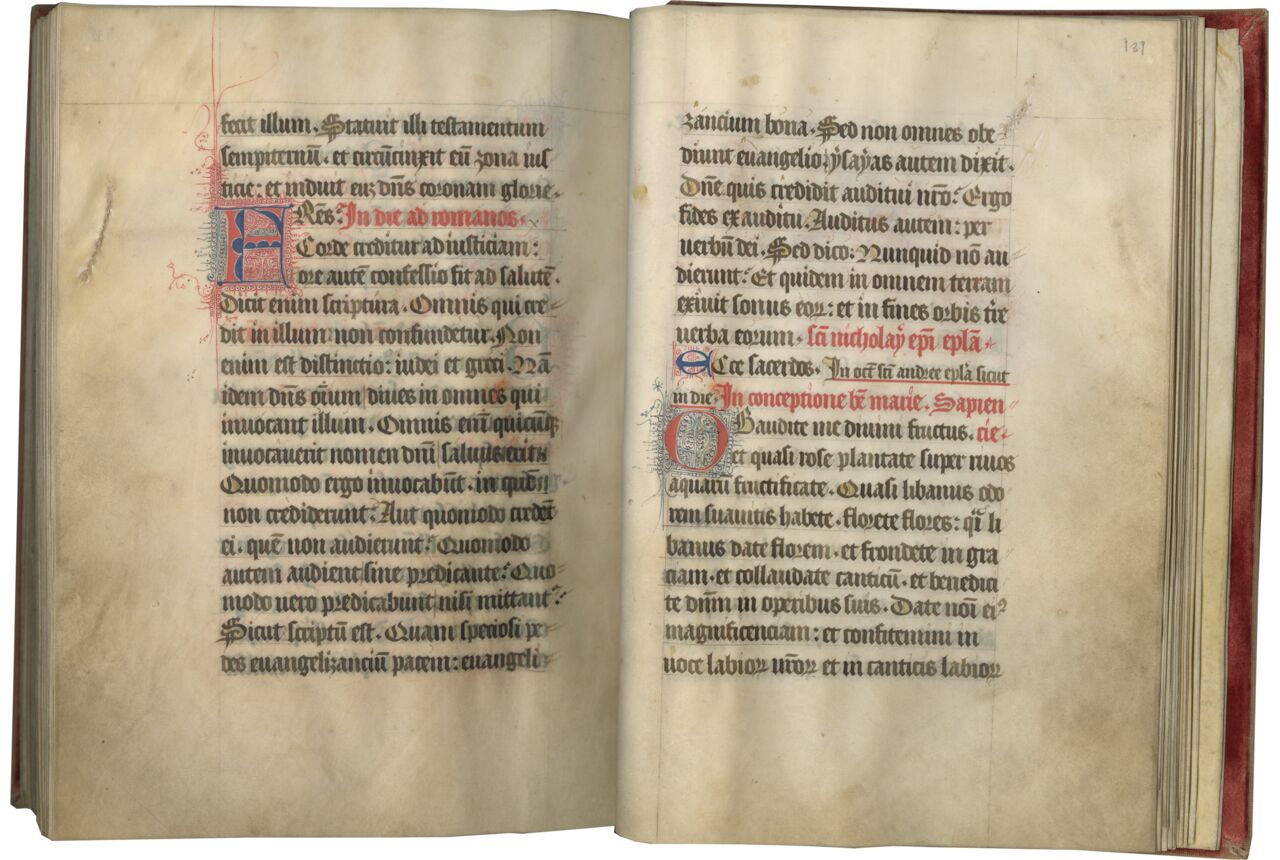 fecit illum. Statuit illi testamentum
sempiternū. et circūcinxit eū zona ius
ticie: et induit euʒ dn̄s coronam glorie.
FRēs: In die ad romanos.
Corde creditur ad iusticiam:
ore autē confessio fit ad salutē.
Dicit enim scriptura. Omnis qui cre
dit in illum non confundetur. Non
enim est distinctio: iudei et greci. Nā
idem dn̄s oīum diues in omnes qui
inuocant illum. Omnis enī quicūqꝫ
inuocauerit nomen dn̄i saluus erit.
Quomodo ergo inuocabūt. in quem
non crediderunt: Aut quomodo credēt
ei. quē non audierunt: Quomodo
autem audient sine predicante: Quo
modo uero predicabunt nisi mittant᷑:
Sicut scriptū est. Quam speciosi pe
des euangelizanciū pacem: euangeli
139
zancium bona. Sed non omnes obe
diunt euangelio. ẏsaẏas autem dixit.
Dn̄e quis credidit auditui nr̄o: Ergo
fides ex auditu. Auditus autem: per
uerbū dei. Sed dico: Nunquid nō au
dierunt: Et quidem in omnem terram
exiuit sonus eoꝝ: et in fines orbis tr̄e
uerba eorum. sc̄i nicholaẏ ep̄i ep̄la.
ECce sacerdos. In oct̄ sc̄i andree ep̄la sicut
in die. In conceptione bē marie. Sapien
OBaudite me diuini fructus. cie.
et quasi rose plantate super riuos
aquarū fructificate. Quasi libanus odo
rem suauitis habete. florete flores: qͣi li
banus date florem. et frondete in gra
ciam. et collaudate canticū. et benedici
te dn̄m in operibus suis. Date noīi eiꝰ
magnificenciam: et confitemini in
uoce labioꝝ ur̄oꝝ et in canticis labioꝝ